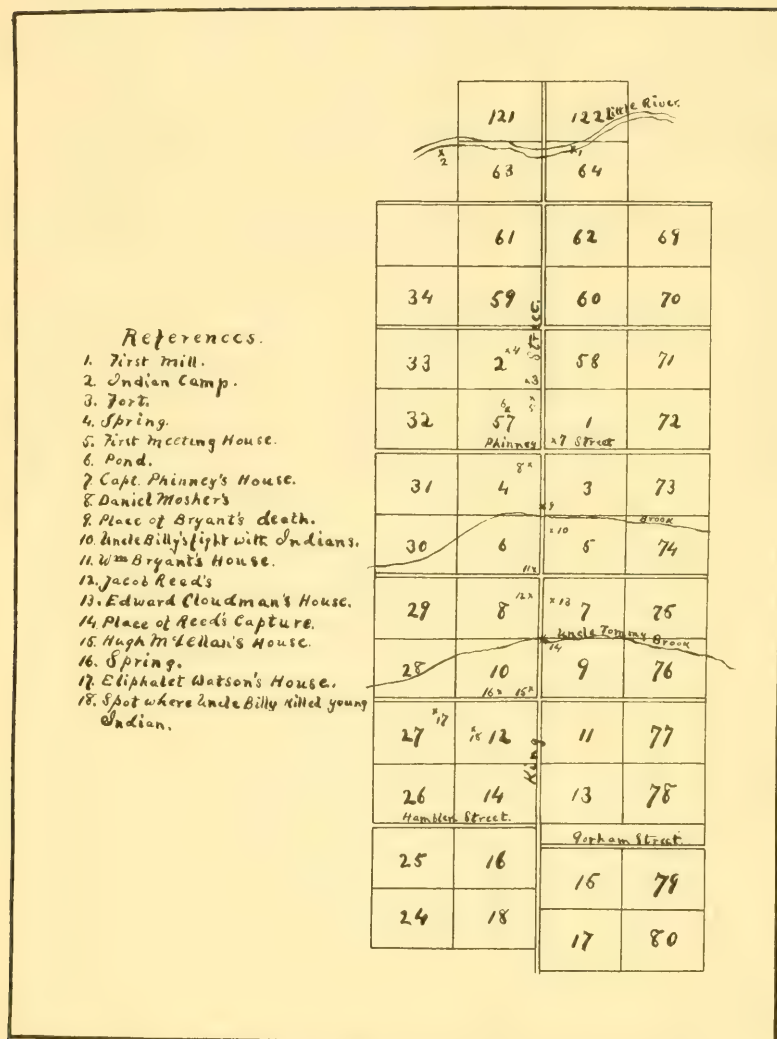 References.
1. First Mill.
2. Indian Camp.
3. Fort.
4. Spring.
5. First Meeting House.
6. Pond.
7. Capt. Phinney's House.
8. Daniel Mosher's
9. Place of Bryant's death.
10. Uncle Billy's fight with Indians.
11. Wm Bryant's House.
12. Jacob Reed's
13. Edward Cloudman's House.
14. Place of Reed's Capture.
15. Hugh McLellan's House.
16. Spring.
17. Eliphalet Watson's House.
18. Spot where Uncle Billy killed young
Indian.
121 122 Little River.
x2 x1
63 64
61 62 69
34 59 60 70
Street.
33 2 x4 58 71
x3
32 6x 57 x5 1 72
Phinney x7 Street
31 4 8x 3 73
x9
Brook
30 6 x10 5 74
11x
29 8 12x x13 7 75
Uncle Tommy Brook
14
28 10 9 76
16x 15x
27 x17 x18 12 11 77
King
26 14 13 78
Hamblen Street.
Gorham Street.
25 16
15 79
24 18
17 80